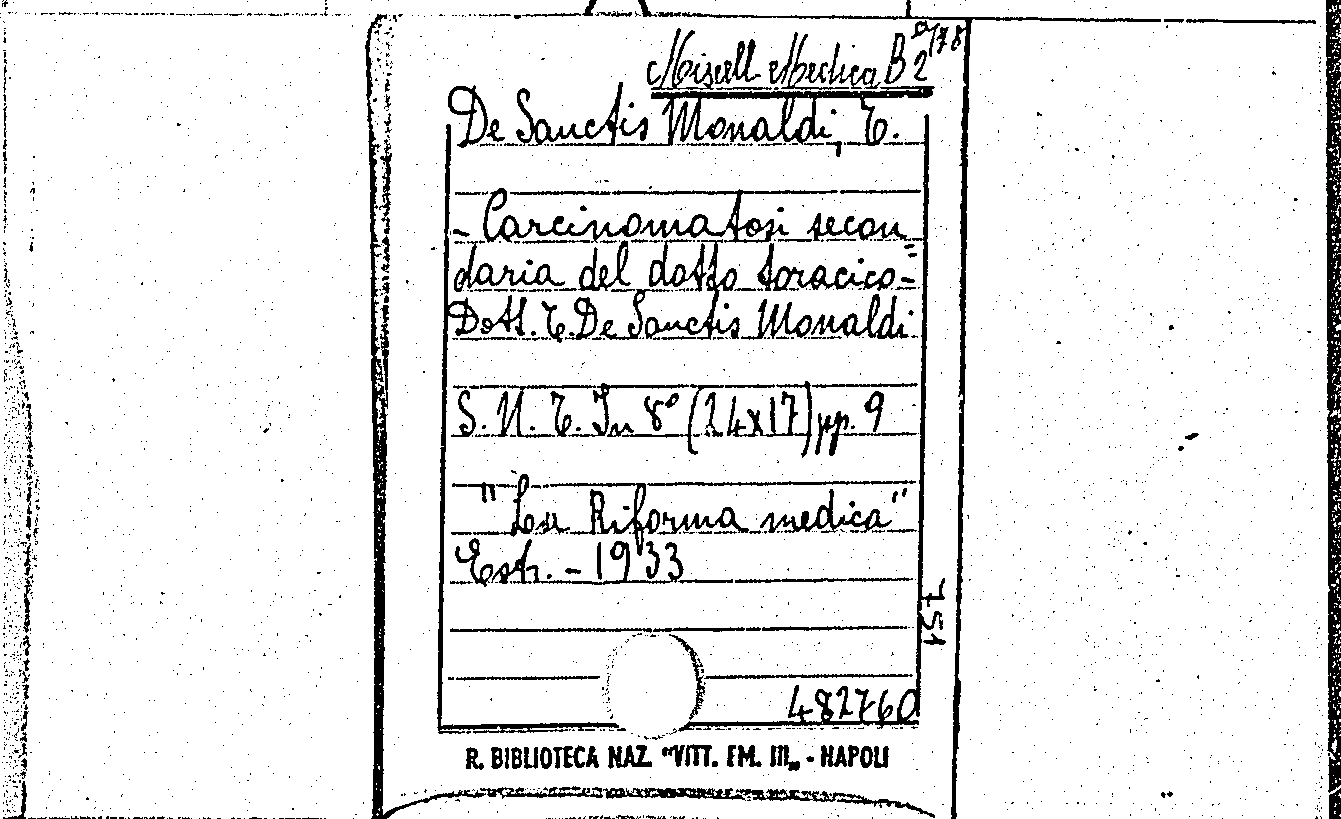 Miscell. Medica B 2 /78
De Sanctis Monaldi, T.
- Carcinomatosi secon=
daria del dotto toracico-
Dott. T. De Sanctis Monaldi
S. N. T. In 8° (24x17) pp. 9
"La Riforma medica"
Estr. - 1933
751
482760
R. BIBLIOTECA NAZ. "VITT. EM. III„ - NAPOLI